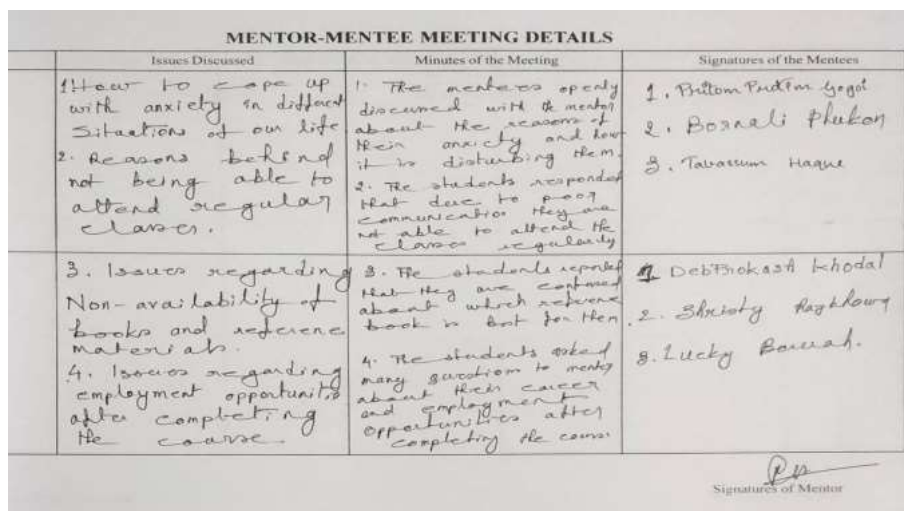 MENTOR-MENTEE MEETING DETAILS
Issues Discussed
Minutes of the Meeting
Signatures of the Mentees
1. How to cope up
with anxiety in different
Situations of our life
2. Reasons behind
not being able to
attend regular
classes.
1. The mentees openly
discussed with the mentor
about the reasons of
their anxiety and how
it is disturbing them.
2. The students responded
that due to poor
communication they are
not able to attend the
classes regularly
1. Pritom Pratim Gogoi
2. Bornali Phukon
3. Tavassum Haque
3. Issues regarding
Non-availability of
books and referene
materials.
4. Issues regarding
employment opportunities
after completing
the course.
3. The students reported
that they are confused
about which referene
book is best for them
4. The students asked
many question to mentor
about their career
and employment
opportunities after
completing the course
1. DebProkash Khodal
2. Shristy
3. Lucky Baruah.
Signatures of Mentor